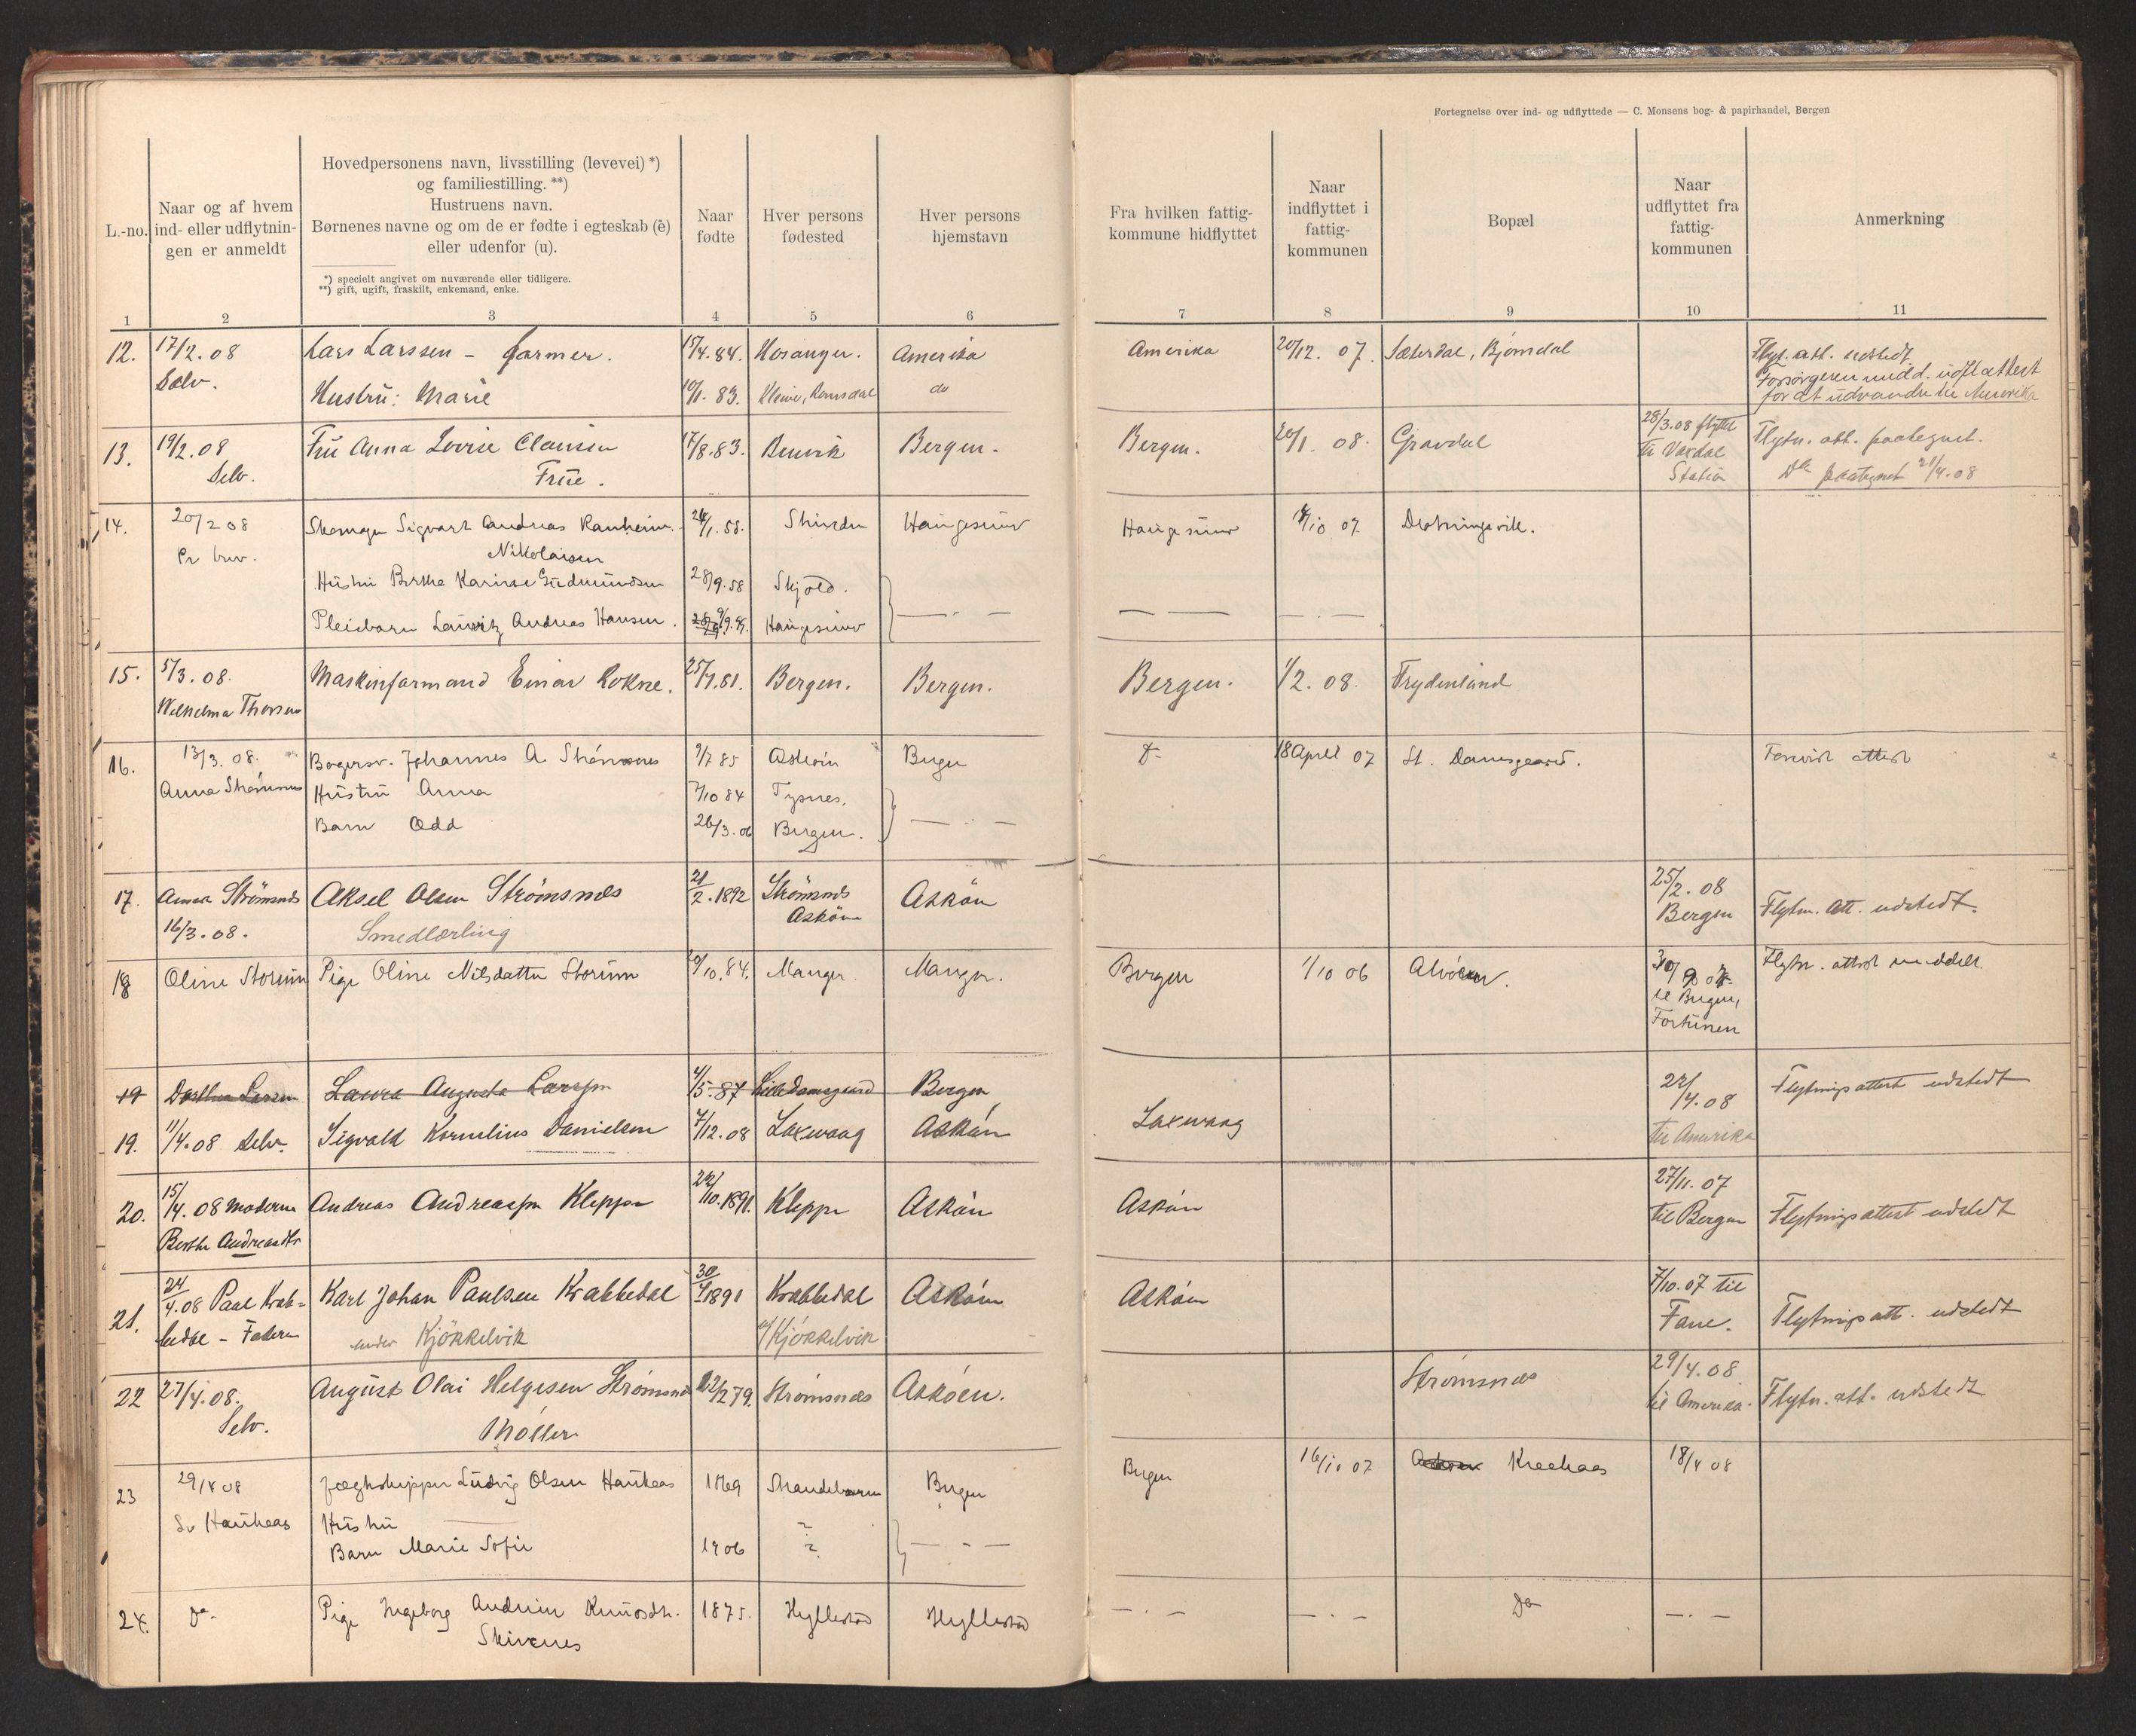 Fortegnelse over ind- og udflyttede — C. Monsens bog- & papirhandel, Bergen
L.-no.
Naar og af hvem
ind- eller udflytnin-
gen er anmeldt
Hovedpersonens navn, livsstilling (levevei) *)
og familiestilling. **)
Hustruens navn.
Børnenes navne og om de er fødte i egteskab (e)
eller udenfor (u).
*) specielt angivet om nuværende eller tidligere.
**) gift, ugift, fraskilt, enkemand, enke.
Naar
fødte
Hver persons
fødested
Hver persons
hjemstavn
Fra hvilken fattig-
kommune hidflyttet
Naar
indflyttet i
fattig-
kommunen
Bopæl
Naar
udflyttet fra
fattig-
kommunen
Anmerkning
1 2 3 4 5 6 7 8 9 10 11
12. 17/2.08 Lars Larssen - farmer. 15/4.84. Hosanger. Amerika Amerika 20/12. 07. Sæterdal, Bjørndal Flyt. att. udstedt.
Selv. Hustru: Marie 10/1. 83. Romsdal do Forsørgeren medd. udfl. attest
for at udvandre til Amerika
13. 19/2.08 Fru Anna Lovise Clausen 17/8.83. Bruvik Bergen. Bergen. 20/1. 08. Gravdal 28/3.08 flyttet Flytn. att. paategnet.
Selv. Frue. til Vaxdal Do paategnet 21/4.08
Station
14. 20/2 08 Skomager Sigvart Andreas Ranheim. 24/1.58. Haugesund Haugesund 07. Drotningsvik.
Pr brev. Nikolaisen
Hustru Berthe Karine Gudmundsen 28/9.58 Skjold.
Pleiebarn Lauritz Andreas Hansen. Haugesund — . — — — — . —
15. 5/3.08. Maskinformand Einar Rokne. 25/1.81. Bergen. Bergen. Bergen. 1/2. 08. Frydenlund
Wilhelma Thorsen
16. 13/3. 08. Bogersv. Johannes A. Strömsnes 9/7 85 Askøin Bergen D- 18 April 07 St. Damsgaard. Forevist attest
Anna Strömsnes Hustru Anna 7/10 84 Tysnes,
Barn Odd 26/3.06 Bergen. — . —
17. Anna Strömsnes Aksel Olsen Strömsnæs 21/2.1892 Strömsnæs Askön 25/2. 08 Flytn. Att. udstedt.
16/3.08. Smedlærling Askön Bergen
18 Oline Storum Pige Oline Nilsdatter Storum /10.84. Manger. Manger. Bergen 1/10 06 Alvöen. 30/9 07 Flytn. attest meddelt.
til Bergen,
Fortunen
19 Dorthea Larsen Laura Augusta Larsen 4/5-87 Lille Damsgaard Bergen 22/4.08 Flytningsattest udstedt
19. 11/4.08 Selv. Sigvald Kornelius Danielsen 7/12.08 Laxevaag Askön Laxevaag til Amerika
20. 15/4. 08 Moderen Andreas Andreassen Kleppe 22/10.1891. Kleppe Askön Askön 27/11. 07 Flytningsattest udstedt
Berthe Andreasdtr til Bergen
21. 24/4.08 Paal Krab- Karl Johan Paulsen Krabbedal 30/ 1891 Krabbedal Askön Askön 7/10.07 til Flytningsatt. udstedt
bedal - Faderen under Kjökkelvik u/Kjökkelvik Fane.
22 27/4.08. August Olai Helgesen Strömsnæs 12/2 79. Strömsnæs Askøen. Strömsnæs 29/4.08. Flytn. att. udstedt
Selv. Möller til Amerika.
23 29/4 08 Jægtskipper Ludvig Olsen Haukaas 1869 Strandebarm Bergen Bergen 16/10 07 18/4 08
Haukaas Hustru ?
Barn Marie Sofie 1906 ? — . —
24. Do- Pige Ingeborg Andrine Knudsdtr. 1875. Hyllestad Hyllestad — . — — . — Do — . —
Skivenes